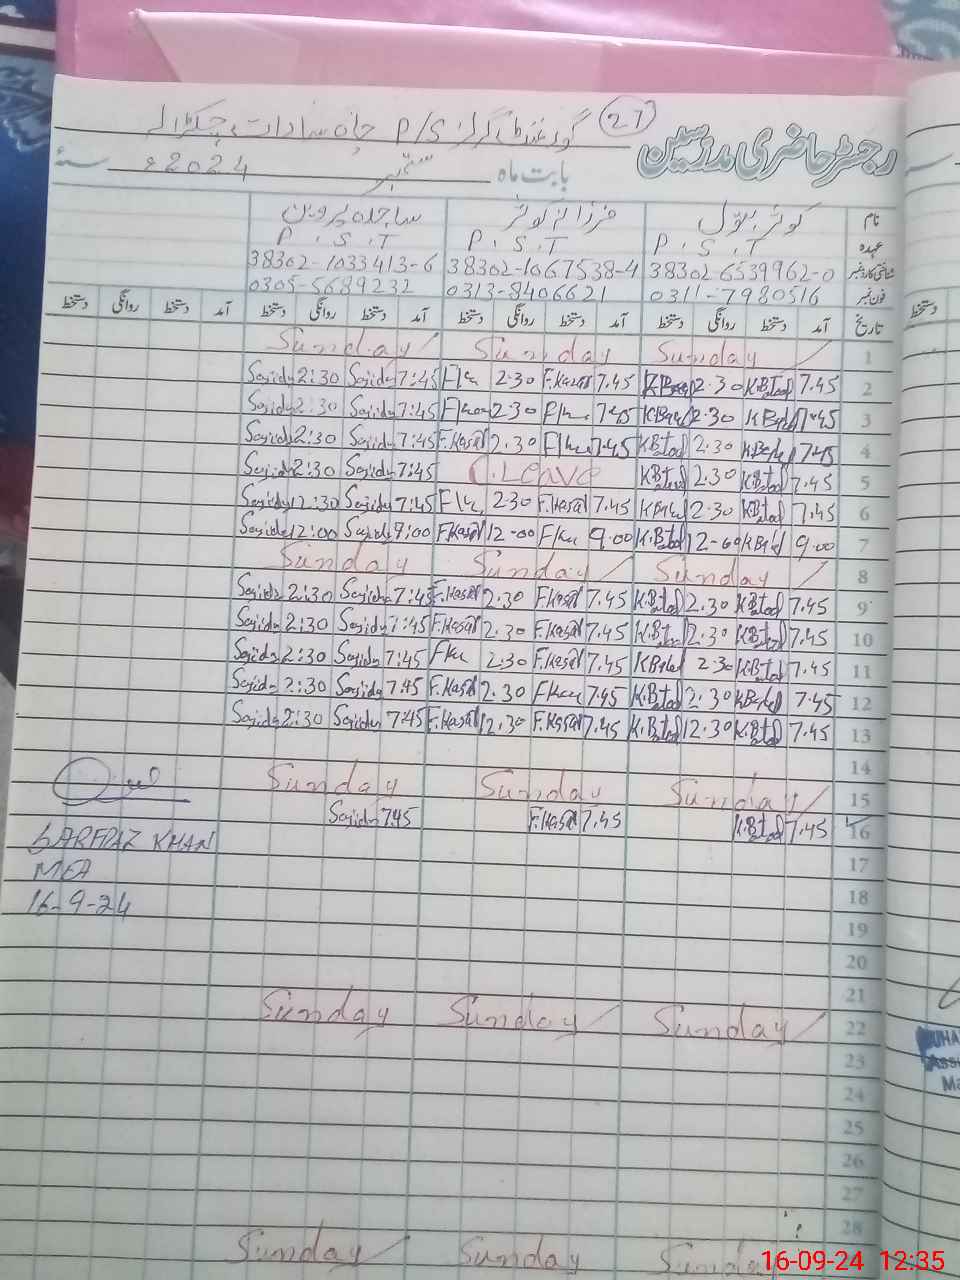 27
گورنمنٹ گرلز P/S چاہ سادات چکڑالہ
رجسٹر حاضری مدرسین
بابت ماہ ستمبر 2024ء سنہ
نام کوثر بتول فرزانہ کوثر ساجدہ پروین
عہدہ P.S.T P.S.T P.S.T
شناختی کارڈ نمبر 38302-6539962-0 38302-1067538-4 38302-1033413-6
فون نمبر 0311-7980516 0313-8406621 0305-5689232
تاریخ آمد دستخط روانگی دستخط آمد دستخط روانگی دستخط آمد دستخط روانگی دستخط آمد دستخط روانگی دستخط
1 Sunday Sunday Sunday
2 7.45 K.Batool 2.30 7.45 F.Kasar 2.30 7:45 Sajida 2:30 Sajida
3 7.45 2.30 7.45 2.30 7:45 Sajida 2:30 Sajida
4 7.45 2.30 K.Batool 7.45 2.30 F.Kasar 7:45 Sajida 2:30 Sajida
5 7.45 K.Batool 2.30 K.Batool C.Leave 7:45 Sajida 2:30 Sajida
6 7.45 K.Batool 2.30 7.45 F.Kasar 2.30 7:45 Sajida 2:30 Sajida
7 9.00 12-00 K.Batool 9.00 12-00 F.Kasar 9:00 Sajida 12:00 Sajida
8 Sunday Sunday Sunday
9 7.45 K.Batool 2.30 K.Batool 7.45 F.Kasar 2.30 F.Kasar 7:45 Sajida 2:30 Sajida
10 7.45 K.Batool 2.30 K.Batool 7.45 F.Kasar 2.30 F.Kasar 7:45 Sajida 2:30 Sajida
11 7.45 K.Batool 2.30 7.45 F.Kasar 2.30 7:45 Sajida 2:30 Sajida
12 7.45 2.30 K.Batool 7.45 2.30 F.Kasar 7:45 Sajida 2:30 Sajida
13 7.45 K.Batool 2.30 K.Batool 7.45 F.Kasar 2.30 F.Kasar 7:45 Sajida 2:30 Sajida
14
15 Sunday Sunday Sunday
16 7.45 K.Batool 7.45 F.Kasar 7:45 Sajida
SARFRAZ KHAN
MEA
16-9-24
17
18
19
20
21
22 Sunday Sunday Sunday
23
24
25
26
27
28
Sunday Sunday Sunday
دستخط
16-09-24 12:35